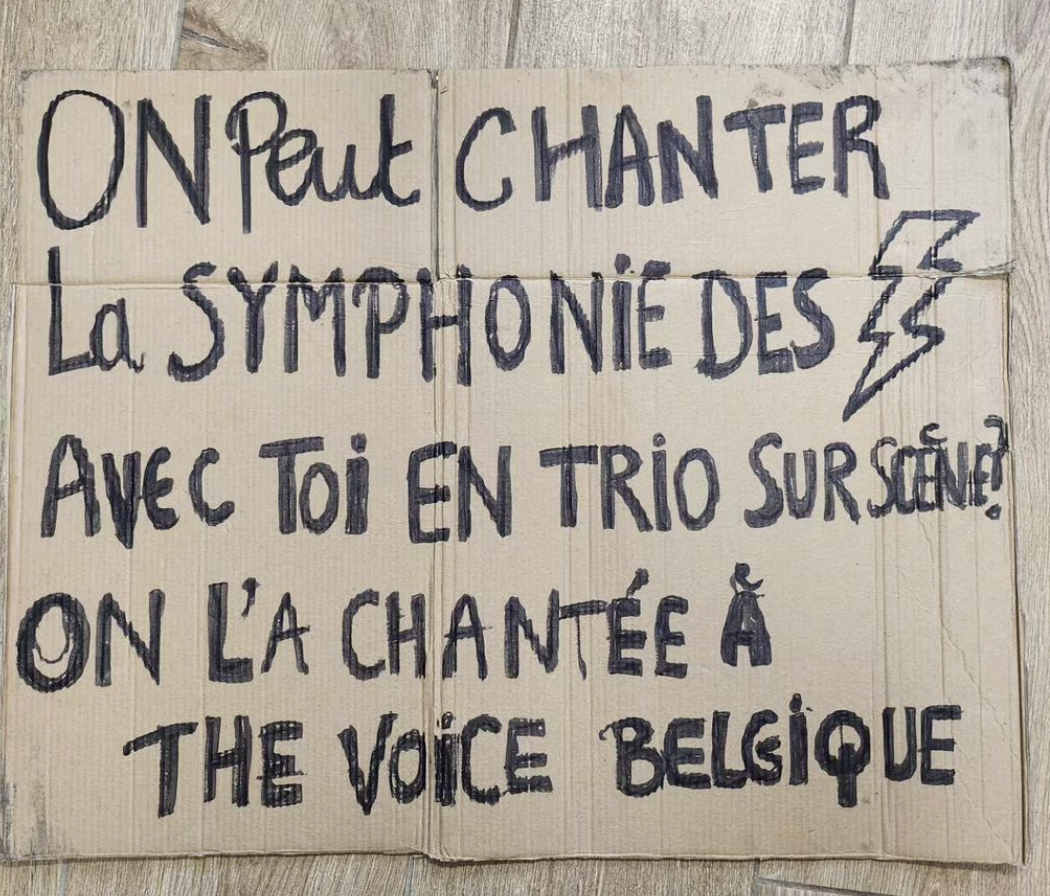 ON Peut CHANTER
La SYMPHONiE DES
AVEC Toi EN TRiO SUR SCÈNE?
ON L'A CHANTÉE À
THE VOiCE BELGiQUE